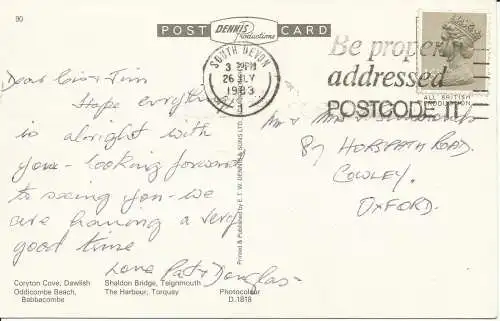 90
POST DENNIS Productions CARD
SOUTH DEVON
3 PM
26 JLY
1983
Be properly
addressed
POSTCODE IT
ALL BRITISH
PRODUCTION
Dear Cis & Jim
Hope everything
is alright with
you - looking forward
to seeing you - we
are having a very
good time
Love Pat & Douglas
Mr & Mrs
87 HORSPATH ROAD.
COWLEY.
OXFORD.
Printed & Published by E. T. W. DENNIS & SONS LTD.
Coryton Cove, Dawlish Shaldon Bridge, Teignmouth Photocolour
Oddicombe Beach, The Harbour, Torquay D.1818
Babbacombe